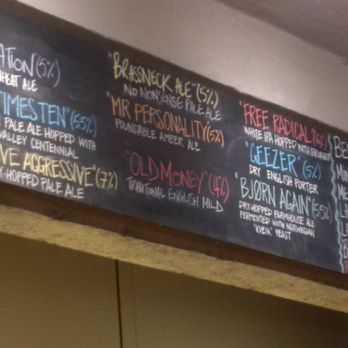 ATION (5%)
EAT ALE
TIMES TEN" (5.5%)
PALE ALE HOPPED WITH
VALLEY CENTENNIAL
VE AGGRESSIVE" (7%)
Y-HOPPED PALE ALE
BRÆSNECK ALE" (5%)
NO NONSENSE PALE ALE
"MR PERSONALITY" (5%)
POUNDABLE AMBER ALE
"OLD MONEY" (4%)
TRADITIONAL ENGLISH MILD
"FREE RADICAL"
WHITE IPA HOPPED WITH
"GEEZER" (5%)
DRY ENGLISH PORTER
"BJØRN AGAIN" (5.5%)
DRY-HOPPED FARMHOUSE ALE
FERMENTED WITH NORWEGIAN
"KVEIK" YEAST